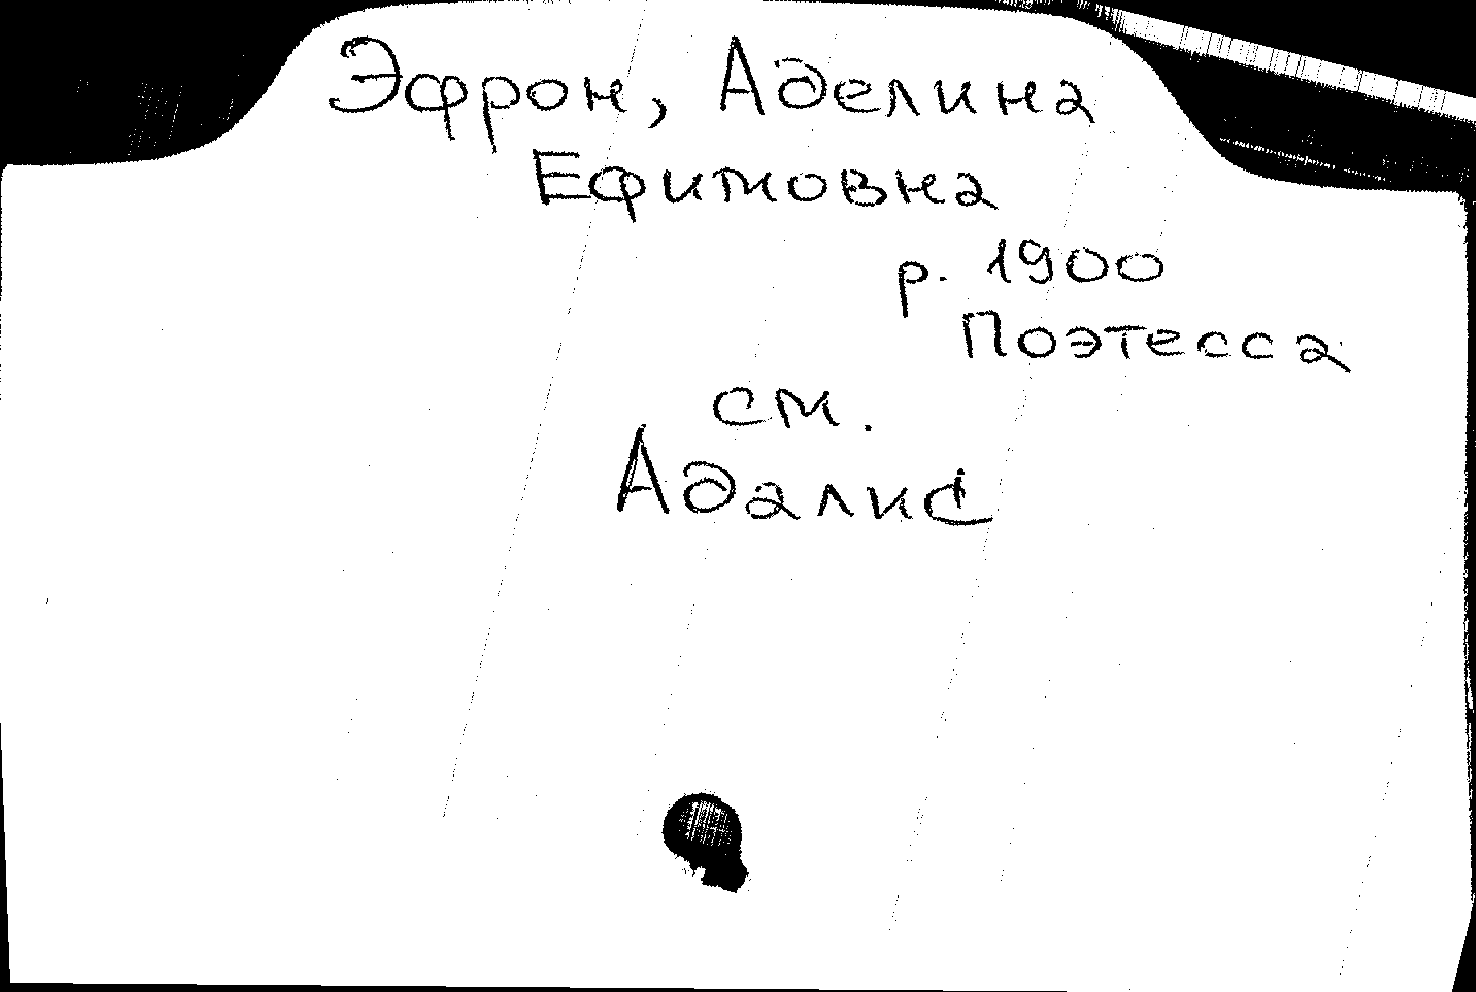 Эфрон, Аделина
Ефимовна
р. 1900
Поэтесса
см.
Адалис